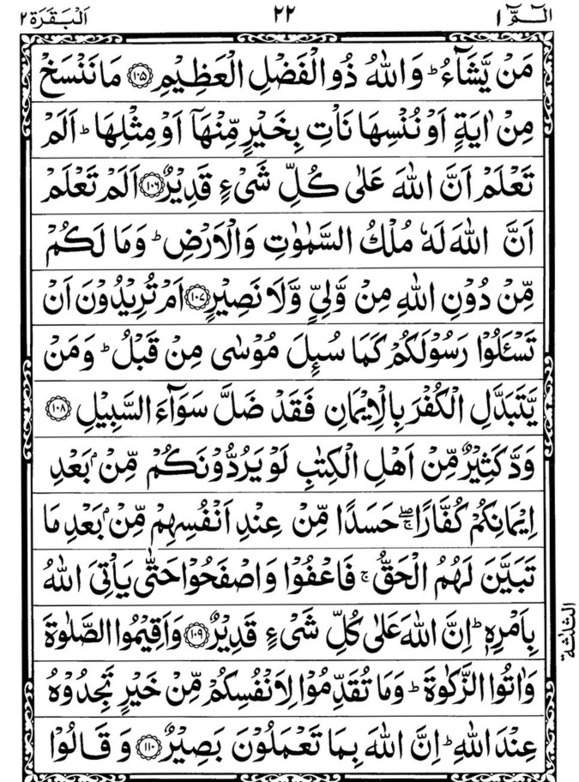 الٓمّٓ ١ ٢٢ اَلْبَقَرَة ٢
مَنْ يَّشَآءُ ؕ وَاللّٰهُ ذُو الْفَضْلِ الْعَظِيْمِ ﴿١٠٥﴾ مَا نَنْسَخْ
مِنْ اٰيَةٍ اَوْ نُنْسِهَا نَاْتِ بِخَيْرٍ مِّنْهَاۤ اَوْ مِثْلِهَا ؕ اَلَمْ
تَعْلَمْ اَنَّ اللّٰهَ عَلٰى كُلِّ شَیْءٍ قَدِيْرٌ ﴿١٠٦﴾ اَلَمْ تَعْلَمْ
اَنَّ اللّٰهَ لَهٗ مُلْكُ السَّمٰوٰتِ وَالْاَرْضِ ؕ وَمَا لَكُمْ
مِّنْ دُوْنِ اللّٰهِ مِنْ وَّلِيٍّ وَّلَا نَصِيْرٍ ﴿١٠٧﴾ اَمْ تُرِيْدُوْنَ اَنْ
تَسْـَٔلُوْا رَسُوْلَكُمْ كَمَا سُىِٕلَ مُوْسٰى مِنْ قَبْلُ ؕ وَمَنْ
يَّتَبَدَّلِ الْكُفْرَ بِالْاِيْمَانِ فَقَدْ ضَلَّ سَوَآءَ السَّبِيْلِ ﴿١٠٨﴾
وَدَّ كَثِيْرٌ مِّنْ اَهْلِ الْكِتٰبِ لَوْ يَرُدُّوْنَكُمْ مِّنْۢ بَعْدِ
اِيْمَانِكُمْ كُفَّارًا ۖۚ حَسَدًا مِّنْ عِنْدِ اَنْفُسِهِمْ مِّنْۢ بَعْدِ مَا
تَبَيَّنَ لَهُمُ الْحَقُّ ۚ فَاعْفُوْا وَاصْفَحُوْا حَتّٰى يَاْتِيَ اللّٰهُ
بِاَمْرِهٖ ؕ اِنَّ اللّٰهَ عَلٰى كُلِّ شَیْءٍ قَدِيْرٌ ﴿١٠٩﴾ وَاَقِيْمُوا الصَّلٰوةَ
وَاٰتُوا الزَّكٰوةَ ؕ وَمَا تُقَدِّمُوْا لِاَنْفُسِكُمْ مِّنْ خَيْرٍ تَجِدُوْهُ
عِنْدَ اللّٰهِ ؕ اِنَّ اللّٰهَ بِمَا تَعْمَلُوْنَ بَصِيْرٌ ﴿١١٠﴾ وَقَالُوْا
الثلٰثة